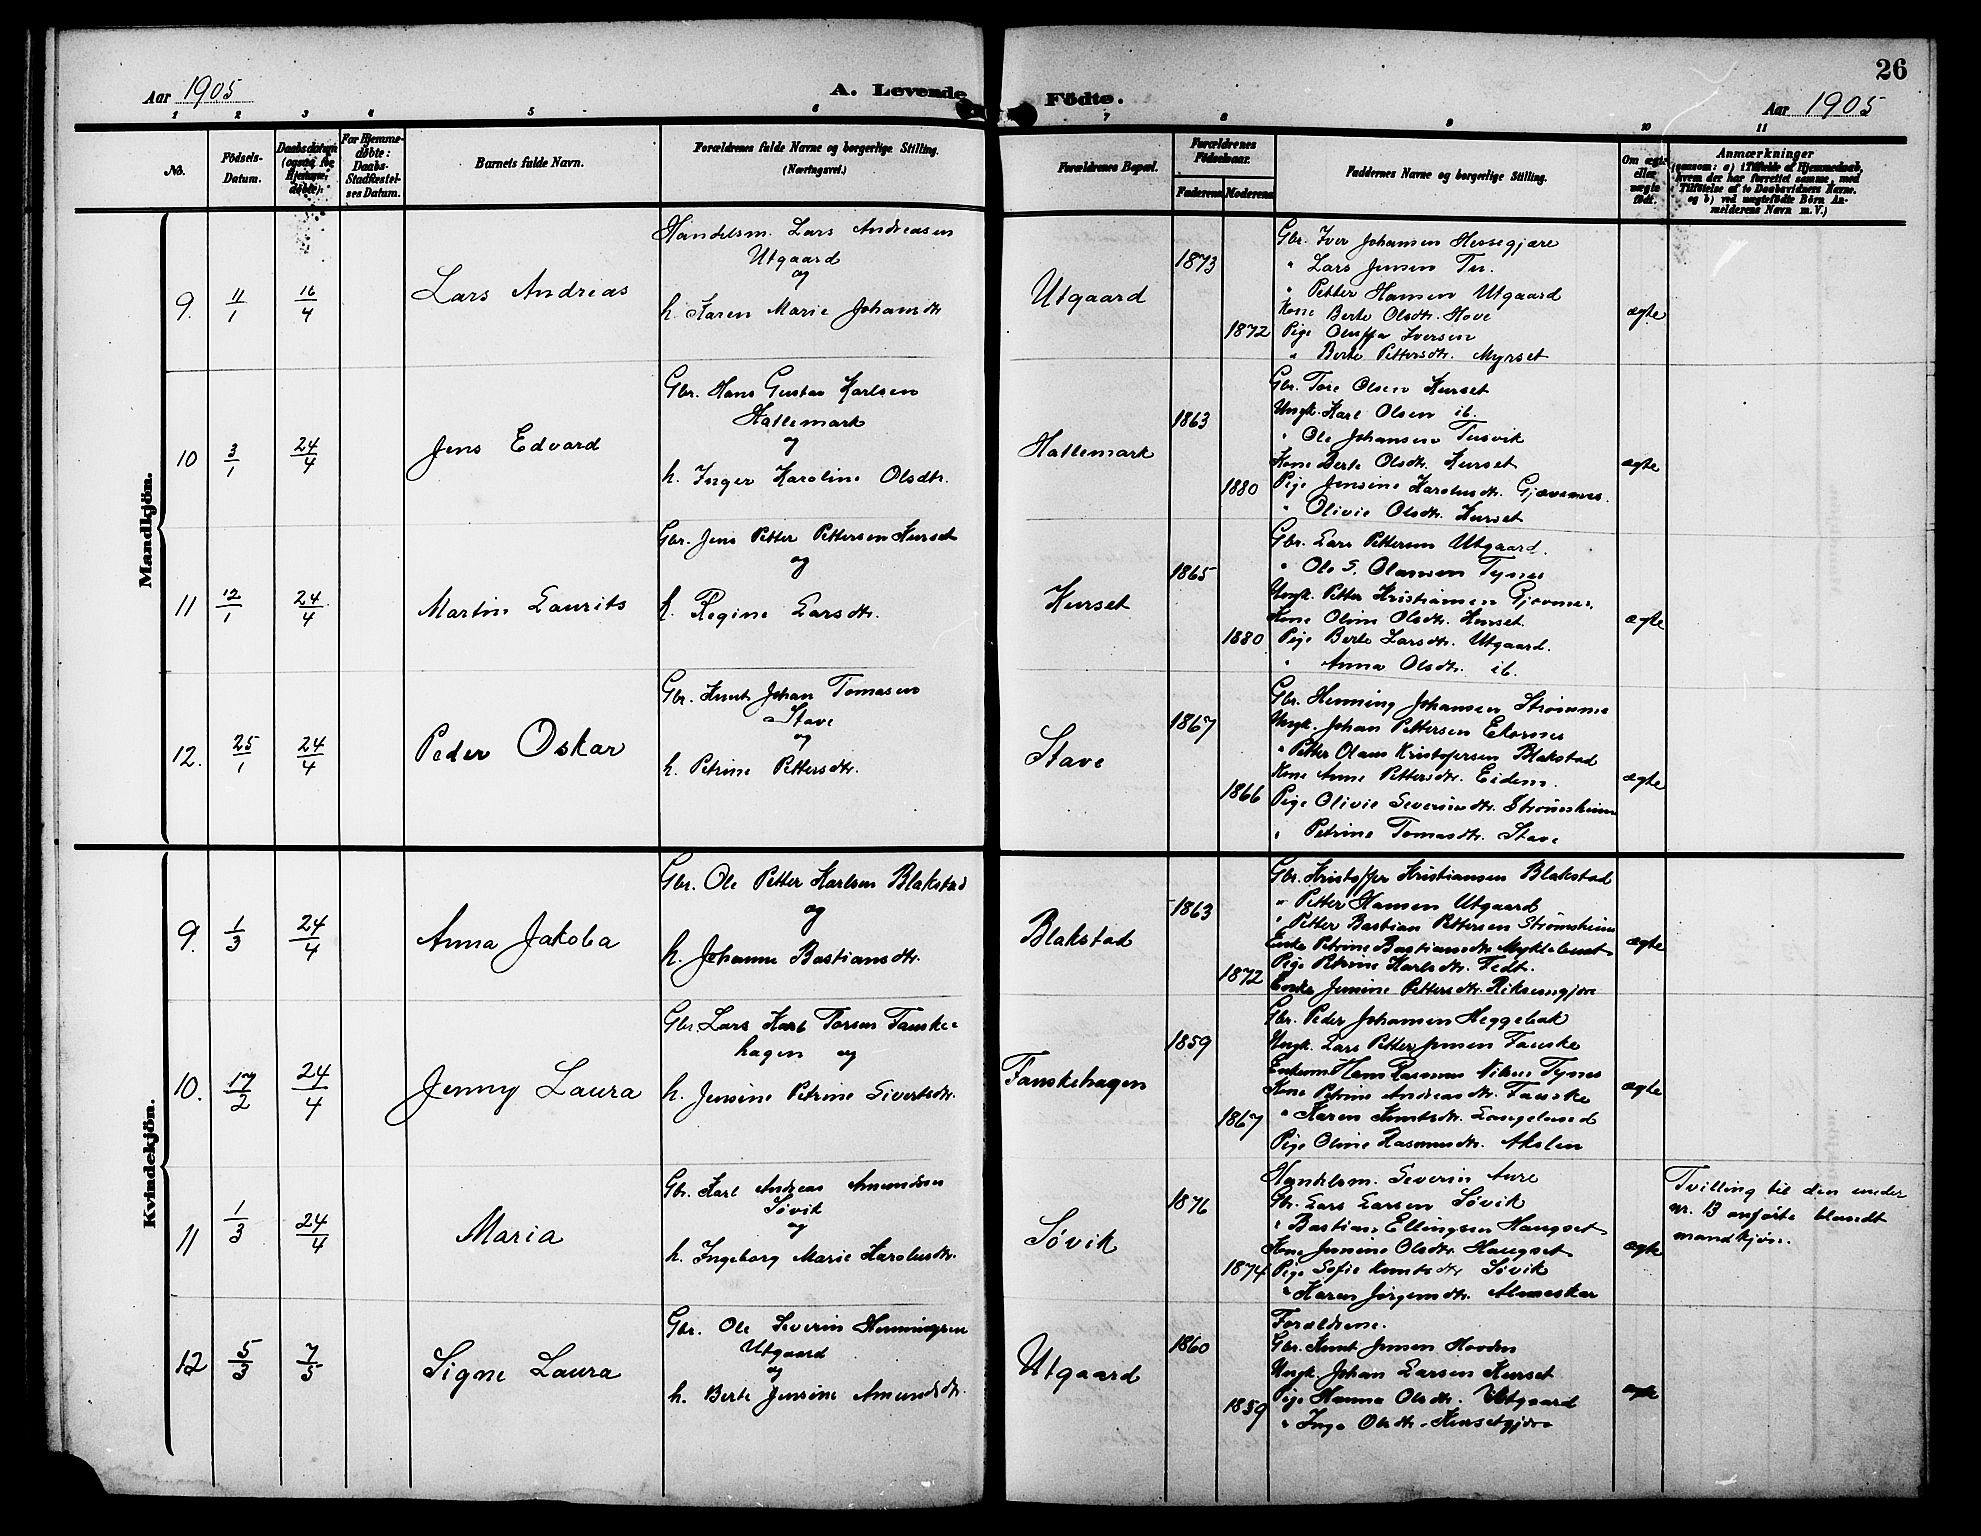 Aar 1905
A. Levende
Födte.
26
Aar 1905
1 2 3 4 5 6 7 8 9 10 11
No.
Födsels-
Datum.
Daabsdatum
(ogsaa for
Hjemme-
döbte).
For Hjemme-
döbte:
Daabs-
Stadfæstel-
ses Datum.
Barnets fulde Navn.
Forældrenes fulde Navne og borgerlige Stilling.
(Næringsvei.)
Forældrenes Bopæl.
Forældrenes
Födselsaar.
Faderens Moderens
Faddernes Navne og borgerlige Stilling.
Om ægte
eller
uægte
født.
Anmærkninger
(saasom: a) i Tilfælde af Hjemmedaab,
hvem der har forrettet samme, med
Tilföielse af to Daabsvidners Navne.
og b) ved uægtefödte Börn An-
melderens Navn m. V.)
Mandkjön.
9. 11/1 16/4
Lars Andreas
Handelsm. Lars Andreasen
Utgaard
og
h. Karen Marie Johansdtr
Utgaard
1873
1872
Gbr. Iver Johansen Hessegjære
" Lars Jensen Tu.
" Petter Hansen Utgaard
Kone Berte Olsdtr. Hove
Pige Iversen
" Berte Pettersdtr. Myrset
ægte
10 3/1 24/4
Jens Edvard
Gbr. Hans Gustav Karlsen
Hatlemark
og
h. Inger Karoline Olsdtr.
Hatlemark
1863
1880
Gbr. Tore Olsen Kurset
Ungk. Karl Olsen ib.
" Ole Johansen Tusvik
Kone Berte Olsdtr. Kurset
Pige Jensine Karolusdtr. Gjævenes
" Olivie Olsdtr. Kurset
ægte
11 12/1 24/4
Martin Laurits
Gbr. Jens Petter Pettersen Kurset
og
h. Regine Larsdtr.
Kurset
1865
1880
Gbr. Lars Pettersen Utgaard.
" Ole S. Olaussen Tynes
Ungk. Petter Kristiansen
Kone Oline Olsdtr. Kurset
Pige Berte Larsdtr. Utgaard.
" Anna Olsdtr. ib.
ægte
12. 25/1 24/4
Peder Oskar
Gbr. Knut Johan Tomasen
Stave
og
h. Petrine Pettersdtr.
Stave
1867
1866
Gbr. Henning Johansen Strømme
Ungk. Johan Pettersen
" Petter Olaus Kristofersen Blakstad
Kone Anne Pettersdtr. Eidem.
Pige Olivie Severinsdtr. Strømsheim
" Petrine Tomasdtr. Stave
ægte
Kvindekjön.
9. 1/3 24/4
Anna Jakoba
Gbr. Ole Petter Karlsen Blakstad
og
h. Johanne Bastiansdtr.
Blakstad
1863
1872
Gbr. Kristoffer Kristiansen Blakstad
" Petter Hansen Utgaard
" Petter Bastian Pettersen Strømsheim
Enke Petrine Bastiansdtr. Myklebust
Pige Petrine Karlsdtr. Fedt.
Enke Jensine Pettersdtr. Riksemgjære
ægte
10. 17/2 24/4
Jenny Laura
Gbr. Lars Karl Torsen Fauske-
hagen og
h. Jensine Petrine Sivertsdtr.
Fauskehagen
1859
1867
Gbr. Peder Johansen Heggebak
Ungk. Lars Petter Jensen Fauske
Enkem. Hans Rasmus Tynes
Kone Petrine Andreasdtr. Fauske
" Karen Knutsdtr. Longelund
Pige Oline Rasmusdtr. Akslen
ægte
11 1/3 24/4
Maria
Gbr. Karl Andreas Amundsen
Søvik
og
h. Ingeborg Marie Karolusdtr.
Søvik
1876
1874
Handelsm. Severin Aure
Gbr. Lars Larsen Søvik
" Bastian Ellingsen Haugset
Kone Jensine Olsdtr. Haugset
Pige Sofie Knutsdtr Søvik
" Karen Jørgensdtr. Almeskar
ægte
Tvilling til den under
nr. 13 anførte blandt
mandkjøn.
12 5/3 7/5
Signe Laura
Gbr. Ole Severin Henningsen
Utgaard
og
h. Berte Jensine Amundsdtr.
Utgaard
1860
1859
Forældrene.
Gbr. Knut Jensen Hovden
Ungk. Johan Larsen Kurset
Pige Hanna Olsdtr. Utgaard
" Inga Olsdtr. Kursetgjære
ægte